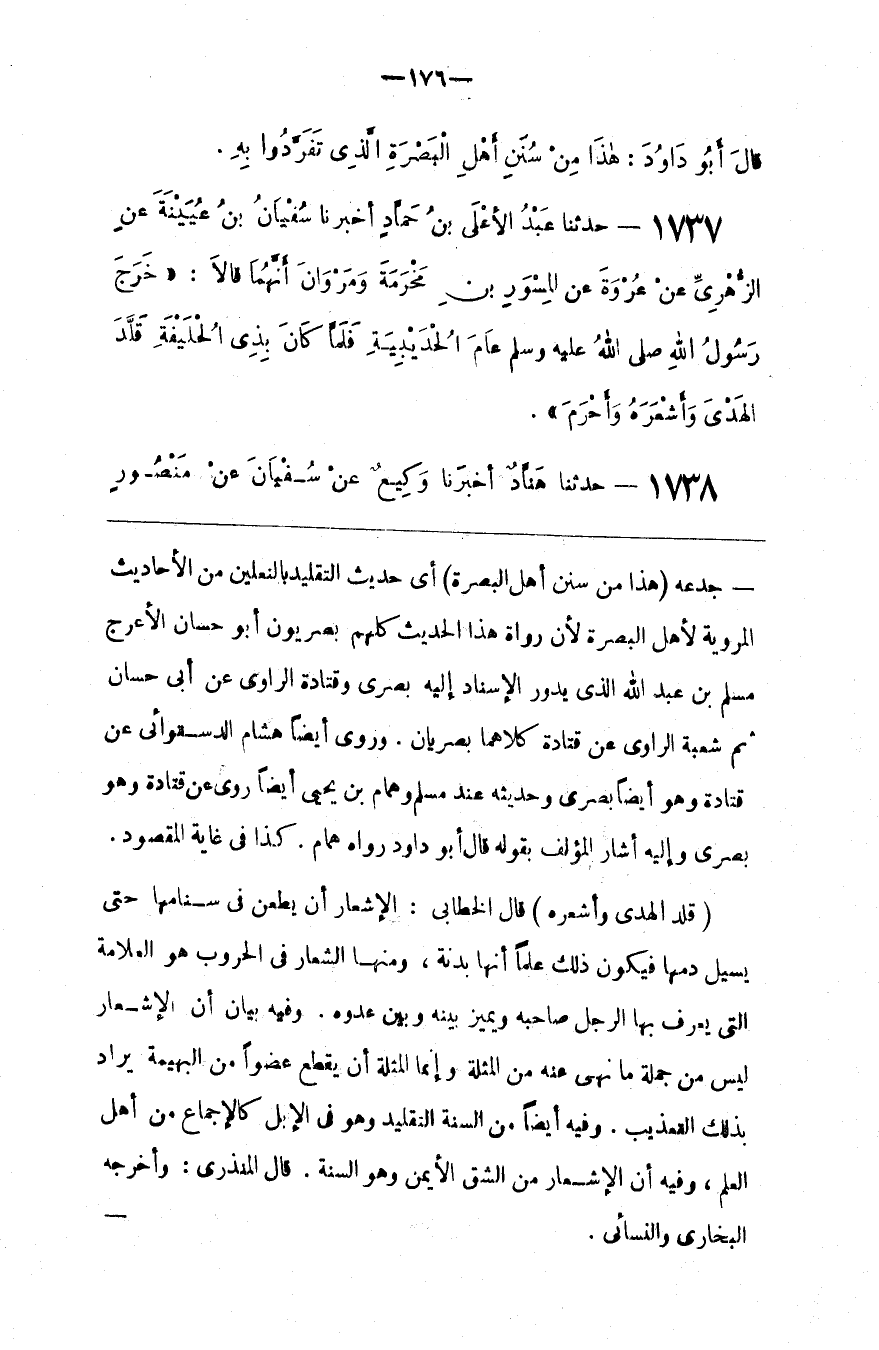 —١٧٦—
قالَ أَبُو دَاوُدَ : هٰذَا مِنْ سُنَنِ أَهْلِ الْبَصْرَةِ الَّذِى تَفَرَّدُوا بِهِ .
١٧٣٧ — حدثنا عَبْدُ الأعْلَى بنُ حَمادٍ أخبرنا سُفْيَانُ بنُ عُيَيْنَةَ عنِ
الزُّهْرِىِّ عنْ عُرْوَةَ عن المِسْوَرِ بنِ مَخْرَمَةَ وَمَرْوَانَ أَنَّهُمَا قالاَ : « خَرَجَ
رَسُولُ اللهِ صلى اللهُ عليه وسلم عَامَ الْحُدَيْبِيَةِ فَلَمَّا كانَ بِذِى الْحُلَيْفَةِ قَلَّدَ
الهَدْىَ وَأَشْعَرَهُ وَأَحْرَمَ » .
١٧٣٨ — حدثنا هَنَّادٌ أخبرَنا وَكِيعٌ عنْ سُفْيَانَ عنْ مَنْصُورٍ
— جدعه (هذا من سنن أهل البصرة) أى حديث التقليد بالنعلين من الأحاديث
المروية لأهل البصرة لأن رواة هذا الحديث كلهم بصريون أبو حسان الأعرج
مسلم بن عبد الله الذى يدور الإسناد إليه بصرى وقتادة الراوى عن أبى حسان
ثم شعبة الراوى عن قتادة كلاهما بصريان . وروى أيضاً هشام الدستوائى عن
قتادة وهو أيضاً بصرى وحديثه عند مسلم وهمام بن يحيى أيضاً روى عن قتادة وهو
بصرى وإليه أشار المؤلف بقوله قال أبو داود رواه همام . كذا فى غاية المقصود .
( قلد الهدى وأشعره ) قال الخطابى : الإشعار أن يطعن فى سنامها حتى
يسيل دمها فيكون ذلك علماً أنها بدنة ، ومنها الشعار فى الحروب هو العلامة
التى يعرف بها الرجل صاحبه ويميز بينه وبين عدوه . وفيه بيان أن الإشعار
ليس من جملة ما نهى عنه من المثلة وإنما المثلة أن يقطع عضواً من البهيمة يراد
بذلك التعذيب . وفيه أيضاً من السنة التقليد وهو فى الإبل كالإجماع من أهل
العلم ، وفيه أن الإشعار من الشق الأيمن وهو السنة . قال المنذرى : وأخرجه
البخارى والنسائى . —